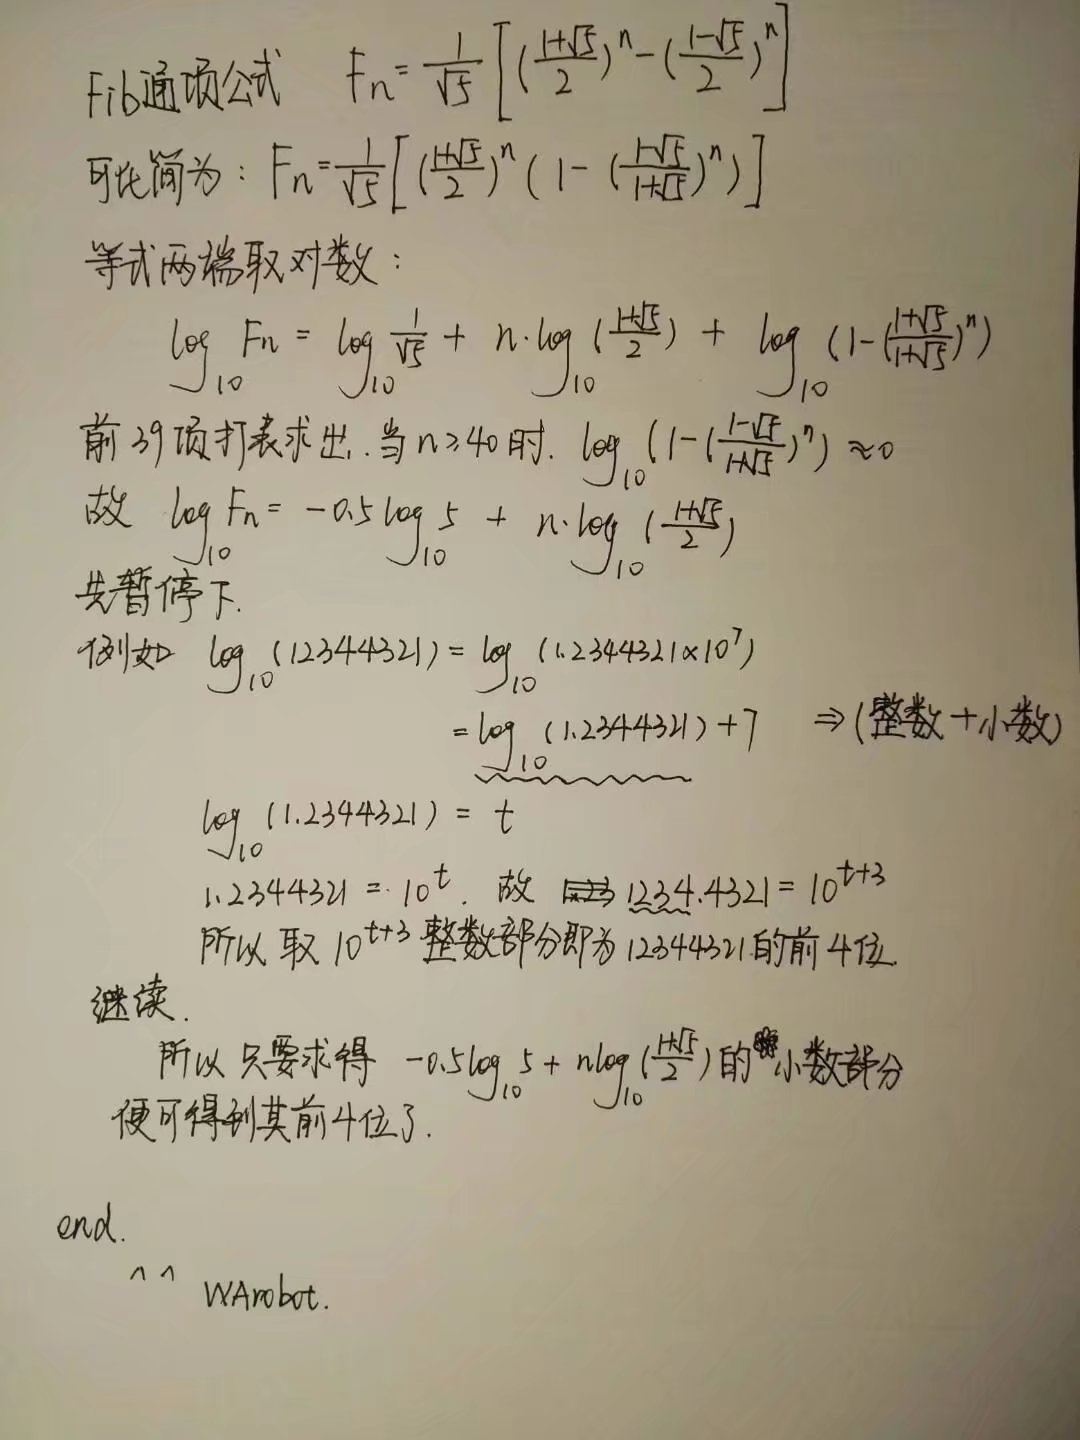 Fib通项公式 Fn = 1/√5 [((1+√5)/2)^n - ((1-√5)/2)^n]
可化简为: Fn = 1/√5 [((1+√5)/2)^n (1 - ((1-√5)/(1+√5))^n)]
等式两端取对数:
log₁₀ Fn = log₁₀ 1/√5 + n·log₁₀((1+√5)/2) + log₁₀(1-((1+√5)/(1+√5))^n)
前39项打表求出.当n≥40时. log₁₀(1-((1-√5)/(1+√5))^n) ≈0
故 log₁₀ Fn = -0.5log₁₀5 + n·log₁₀((1+√5)/2)
先暂停下.
例如 log₁₀(12344321) = log₁₀(1.2344321×10^7)
= log₁₀(1.2344321)+7 ⇒(整数+小数)
log₁₀(1.2344321) = t
1.2344321 = 10^t. 故 1234.4321 = 10^(t+3)
所以取10^(t+3)整数部分即为12344321的前4位.
继续.
所以只要求得 -0.5log₁₀5 + nlog₁₀((1+√5)/2)的小数部分
便可得到其前4位了.
end.
^ ^ WArobot.